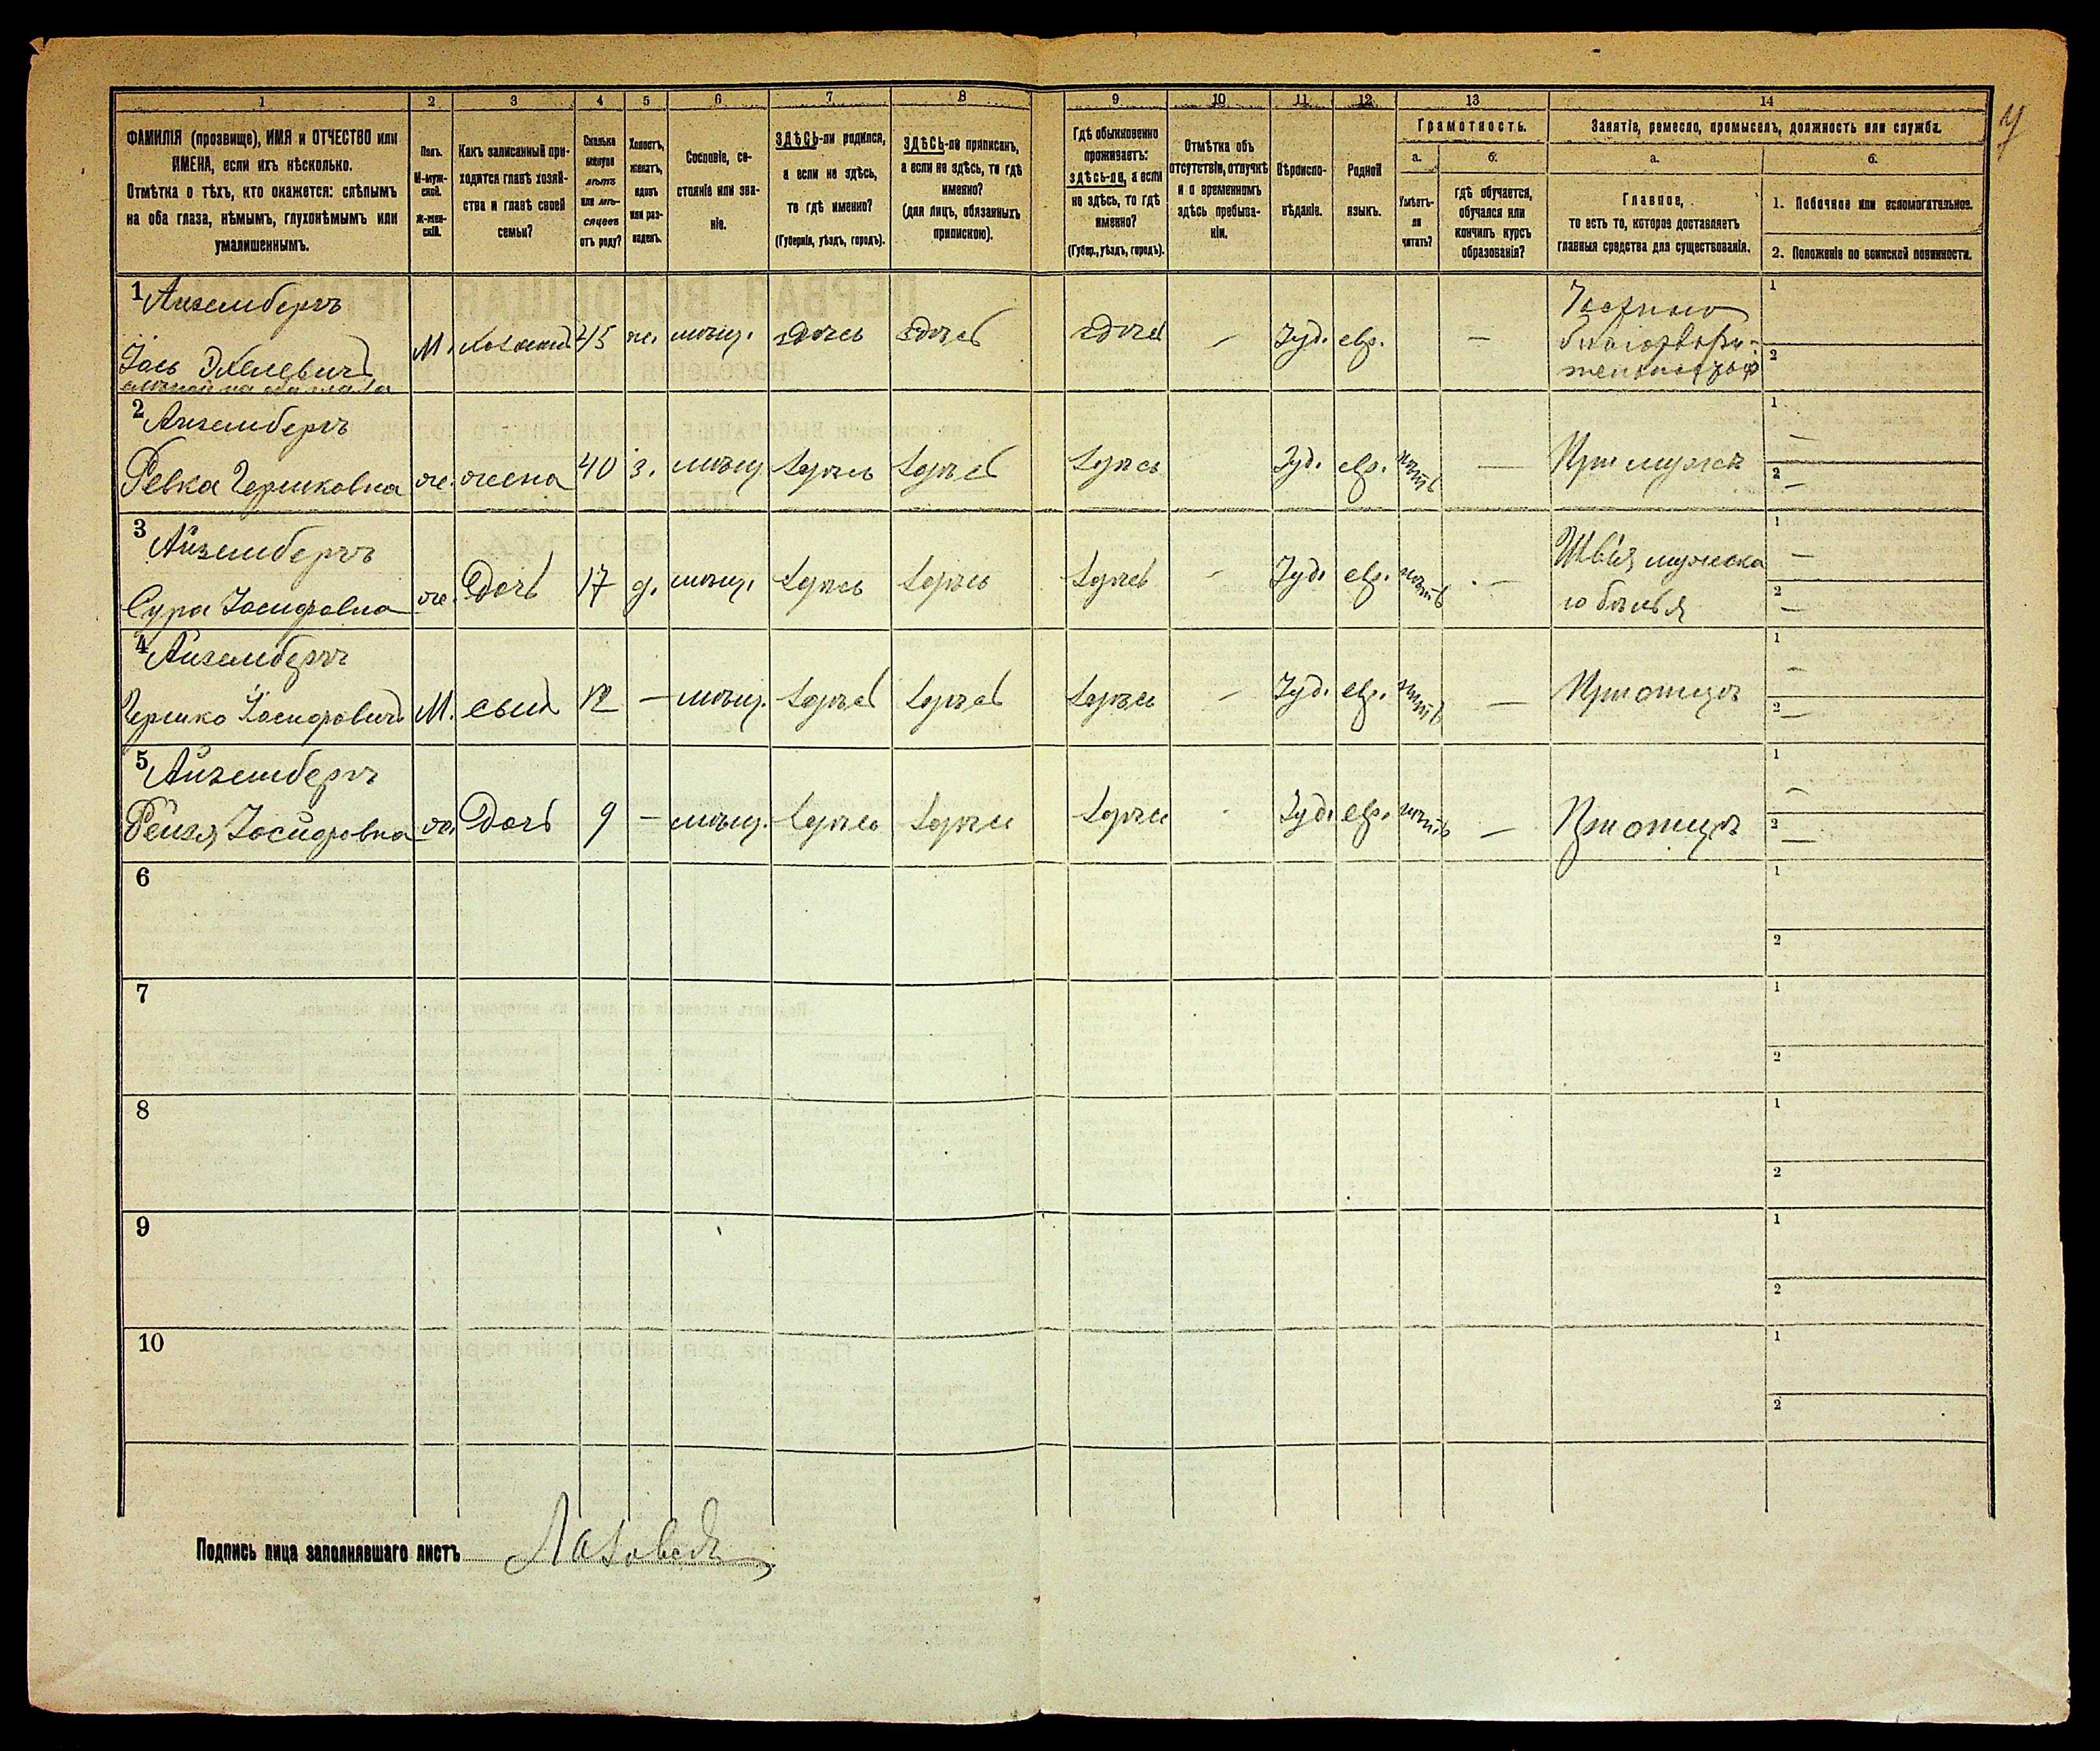 1 2 3 4 5 6 7 8 9 10 11 12 13 14
ФАМИЛІЯ (прозвище), ИМЯ и ОТЧЕСТВО или
ИМЕНА, если ихъ нѣсколько.
Отмѣтка о тѣхъ, кто окажется: слѣпымъ
на оба глаза, нѣмымъ, глухонѣмымъ или
умалишеннымъ.
Полъ.
М-муж-
ской.
Ж-жен-
скій.
Какъ записанный при-
ходится главѣ хозяй-
ства и главѣ своей
семьи?
Сколько
минуло
лѣтъ
или мѣ-
сяцевъ
отъ роду?
Холостъ,
женатъ,
вдовъ
или раз-
веденъ.
Сословіе, со-
стояніе или зва-
ніе.
ЗДѢСЬ-ли родился,
а если не здѣсь,
то гдѣ именно?
(Губернія, уѣздъ, городъ).
ЗДѢСЬ-ли приписанъ,
а если не здѣсь, то гдѣ
именно?
(для лицъ, обязанныхъ
припискою).
Гдѣ обыкновенно
проживаетъ:
здѣсь-ли, а если
не здѣсь, то гдѣ
именно?
(Губер., уѣздъ, городъ).
Отмѣтка объ
отсутствіи, отлучкѣ
и о временномъ
здѣсь пребыва-
ніи.
Вѣроиспо-
вѣданіе.
Родной
языкъ.
Грамотность.
а.
Умѣетъ-
ли
читать?
б.
гдѣ обучается,
обучался или
кончилъ курсъ
образованія?
Занятіе, ремесло, промыселъ, должность или служба.
а.
Главное,
то есть то, которое доставляетъ
главныя средства для существованія.
б.
1. Побочное или вспомогательное.
2. Положеніе по воинской повинности.
1 Айзембергъ
слѣпой на оба глаза
М. хозяинъ 45 ж. мѣщ. здѣсь здѣсь здѣсь – Іуд. евр. –
1
2
2 Айзембергъ
Ревка Гершковна ж. жена 40 з. мѣщ. здѣсь здѣсь здѣсь Іуд. евр. нѣтъ – При мужѣ
1 –
2 –
3 Айзембергъ
Сура Іосифовна ж. Дочь 17 д. мѣщ. здѣсь здѣсь здѣсь – Іуд. евр. нѣтъ –
Швея мужска
го бѣлья
1 –
2 –
4 Айзембергъ
Гершко Іосифовичъ М. сынъ 12 – мѣщ. здѣсь здѣсь здѣсь – Іуд. евр. нѣтъ – При отцѣ
1 –
2 –
5 Айзембергъ
Рейзя Іосифовна ж. Дочь 9 – мѣщ. здѣсь здѣсь здѣсь - Іуд. евр. нѣтъ – При отцѣ
1 –
2 –
6
1
2
7
1
2
8
1
2
9
1
2
10
1
2
Подпись лица заполнявшаго листъ